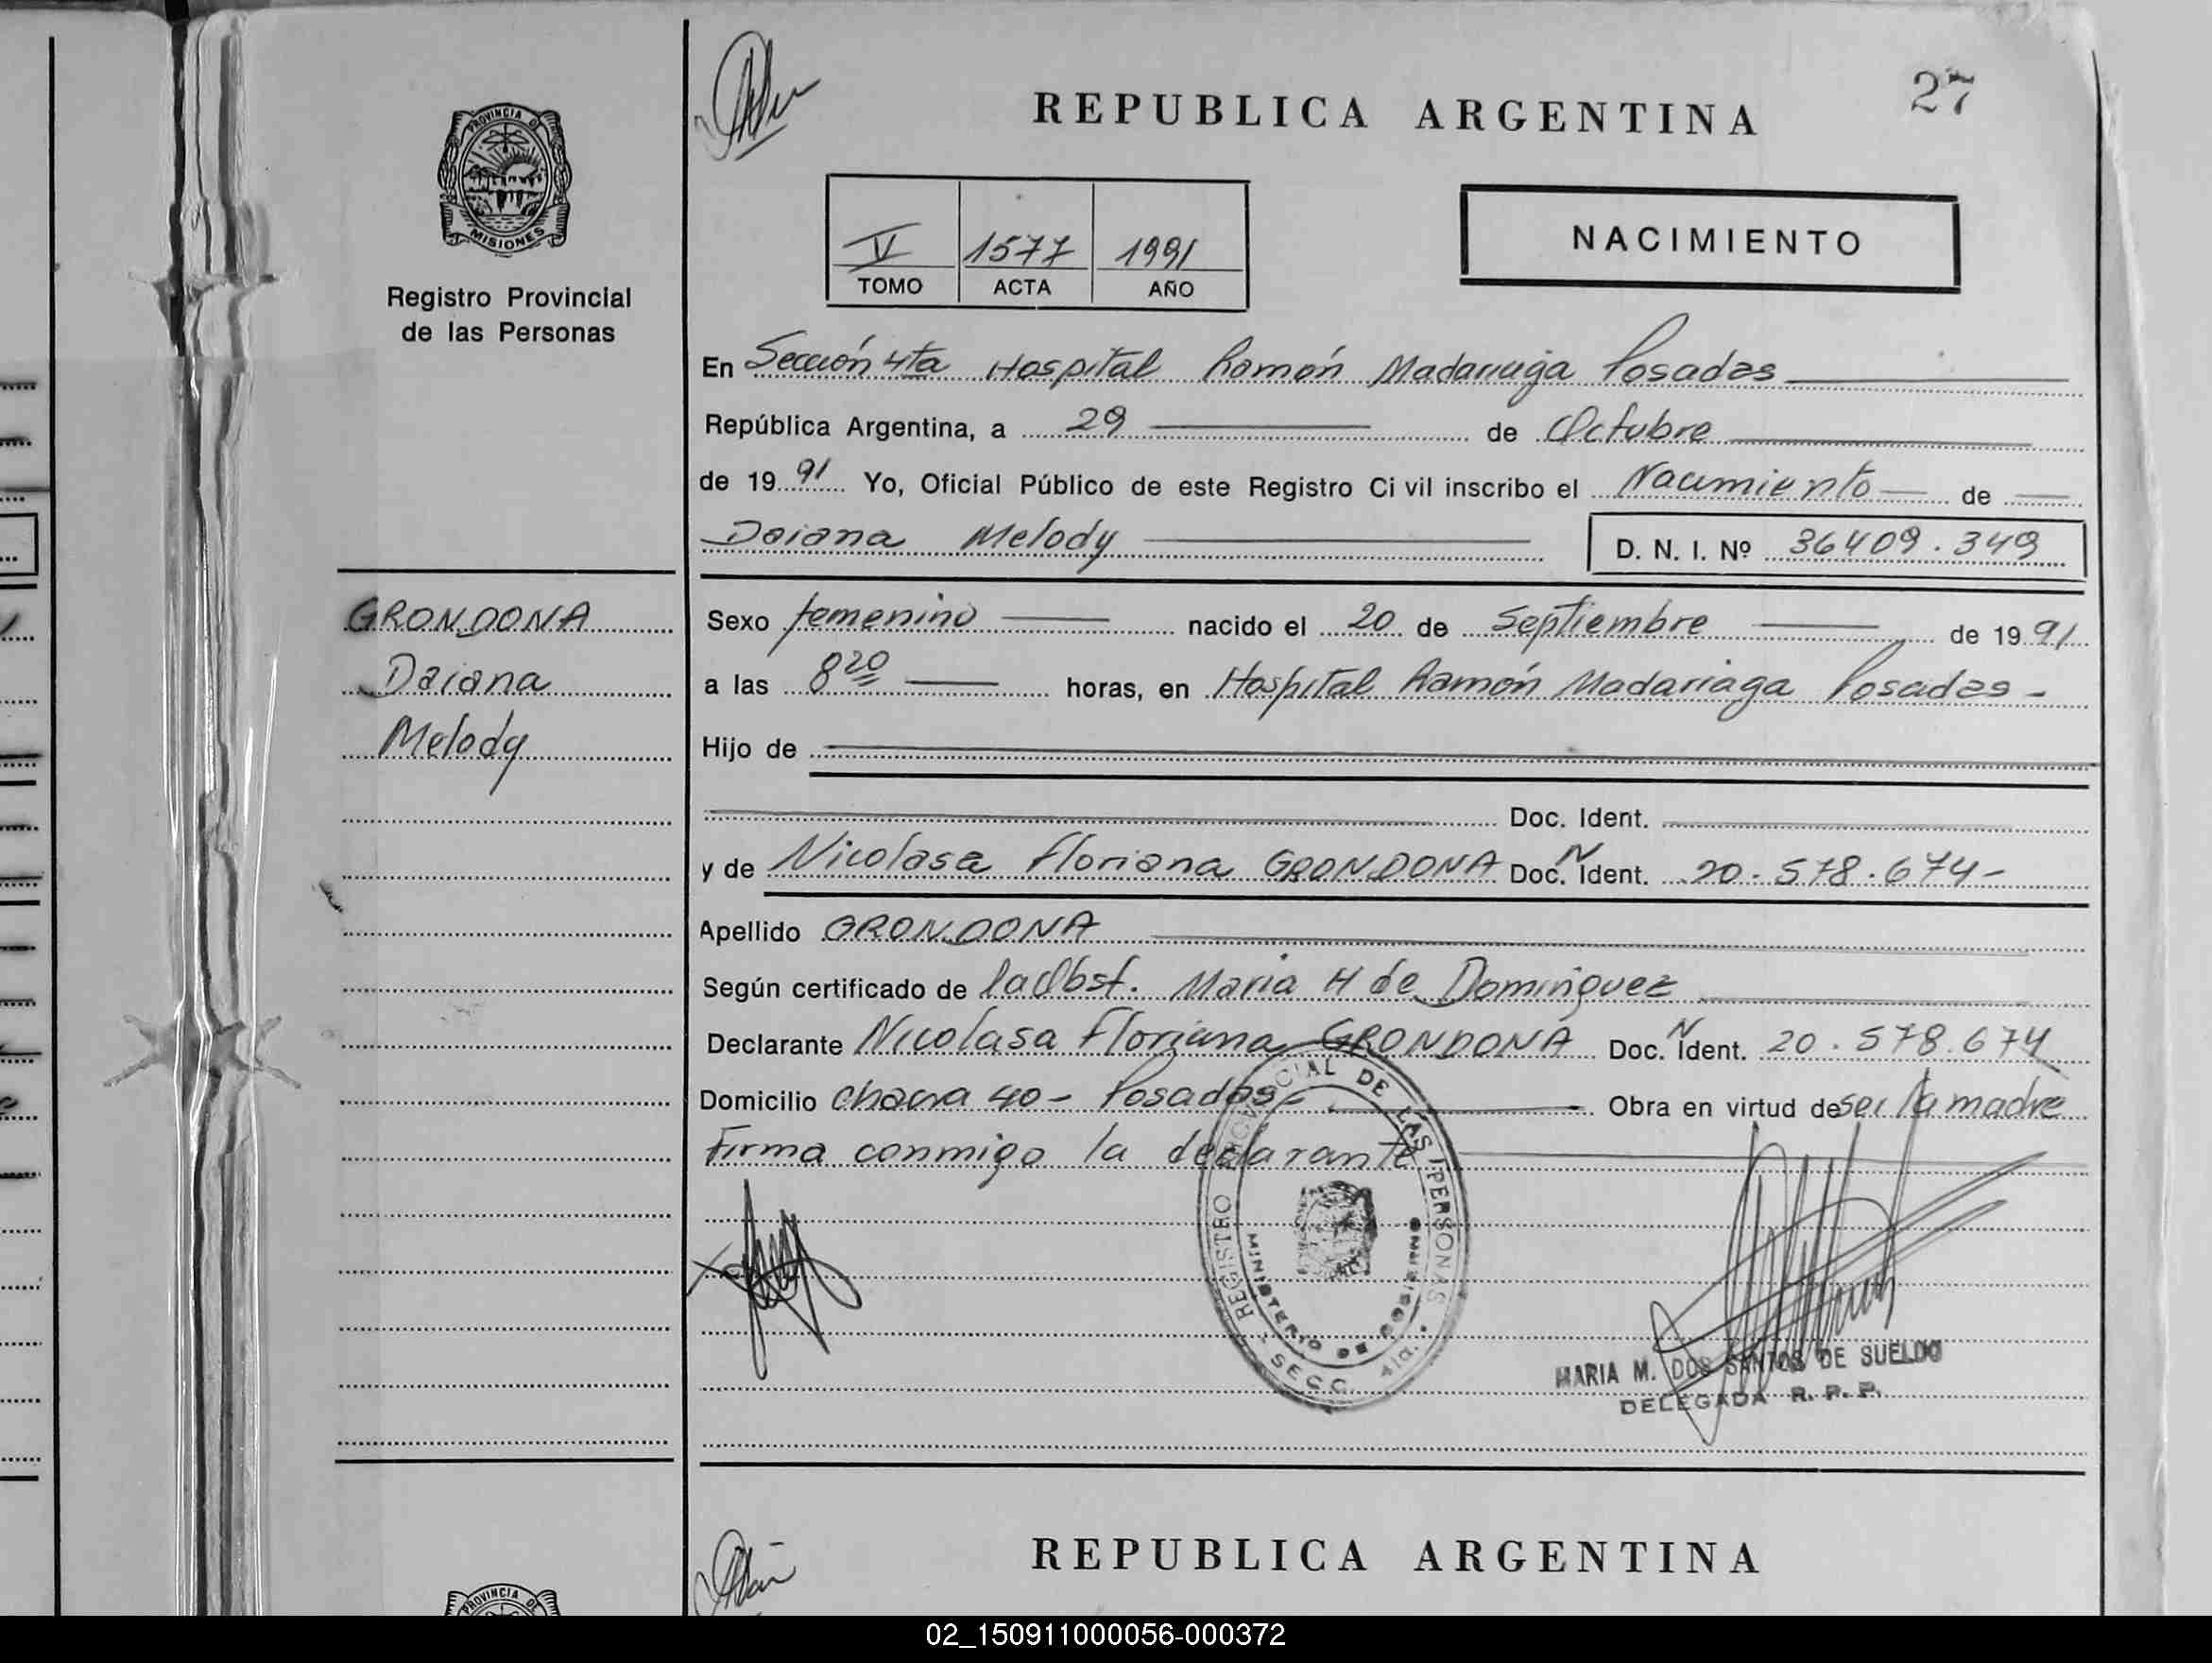 27
REPUBLICA ARGENTINA
PROVINCIA DE
MISIONES
Registro Provincial
de las Personas
V 1577 1991
TOMO ACTA AÑO
NACIMIENTO
En Sección 4ta Hospital Ramón Madariaga Posadas
República Argentina, a 29 de Octubre
de 19 91 Yo, Oficial Público de este Registro Civil inscribo el Nacimiento de
Daiana Melody D. N. I. Nº 36409.349
GRONDONA
Daiana
Melody
Sexo femenino nacido el 20 de Septiembre de 19 91
a las 8 20 horas, en Hospital Ramón Madariaga Posadas -
Hijo de
Doc. Ident.
y de Nicolasa Floriana GRONDONA Doc. N Ident. 20.578.674-
Apellido GRONDONA
Según certificado de la Obst. Maria H de Dominguez
Declarante Nicolasa Floriana GRONDONA Doc. N Ident. 20.578.674
Domicilio Chacra 40- Posadas- Obra en virtud de ser la madre
Firma conmigo la declarante
REGISTRO PROVINCIAL DE LAS PERSONAS
MINISTERIO DE GOBIERNO
SECC. 4ta.
MARIA M. DOS SANTOS DE SUELDO
DELEGADA R. P. P.
REPUBLICA ARGENTINA
PROVINCIA DE
02_150911000056-000372